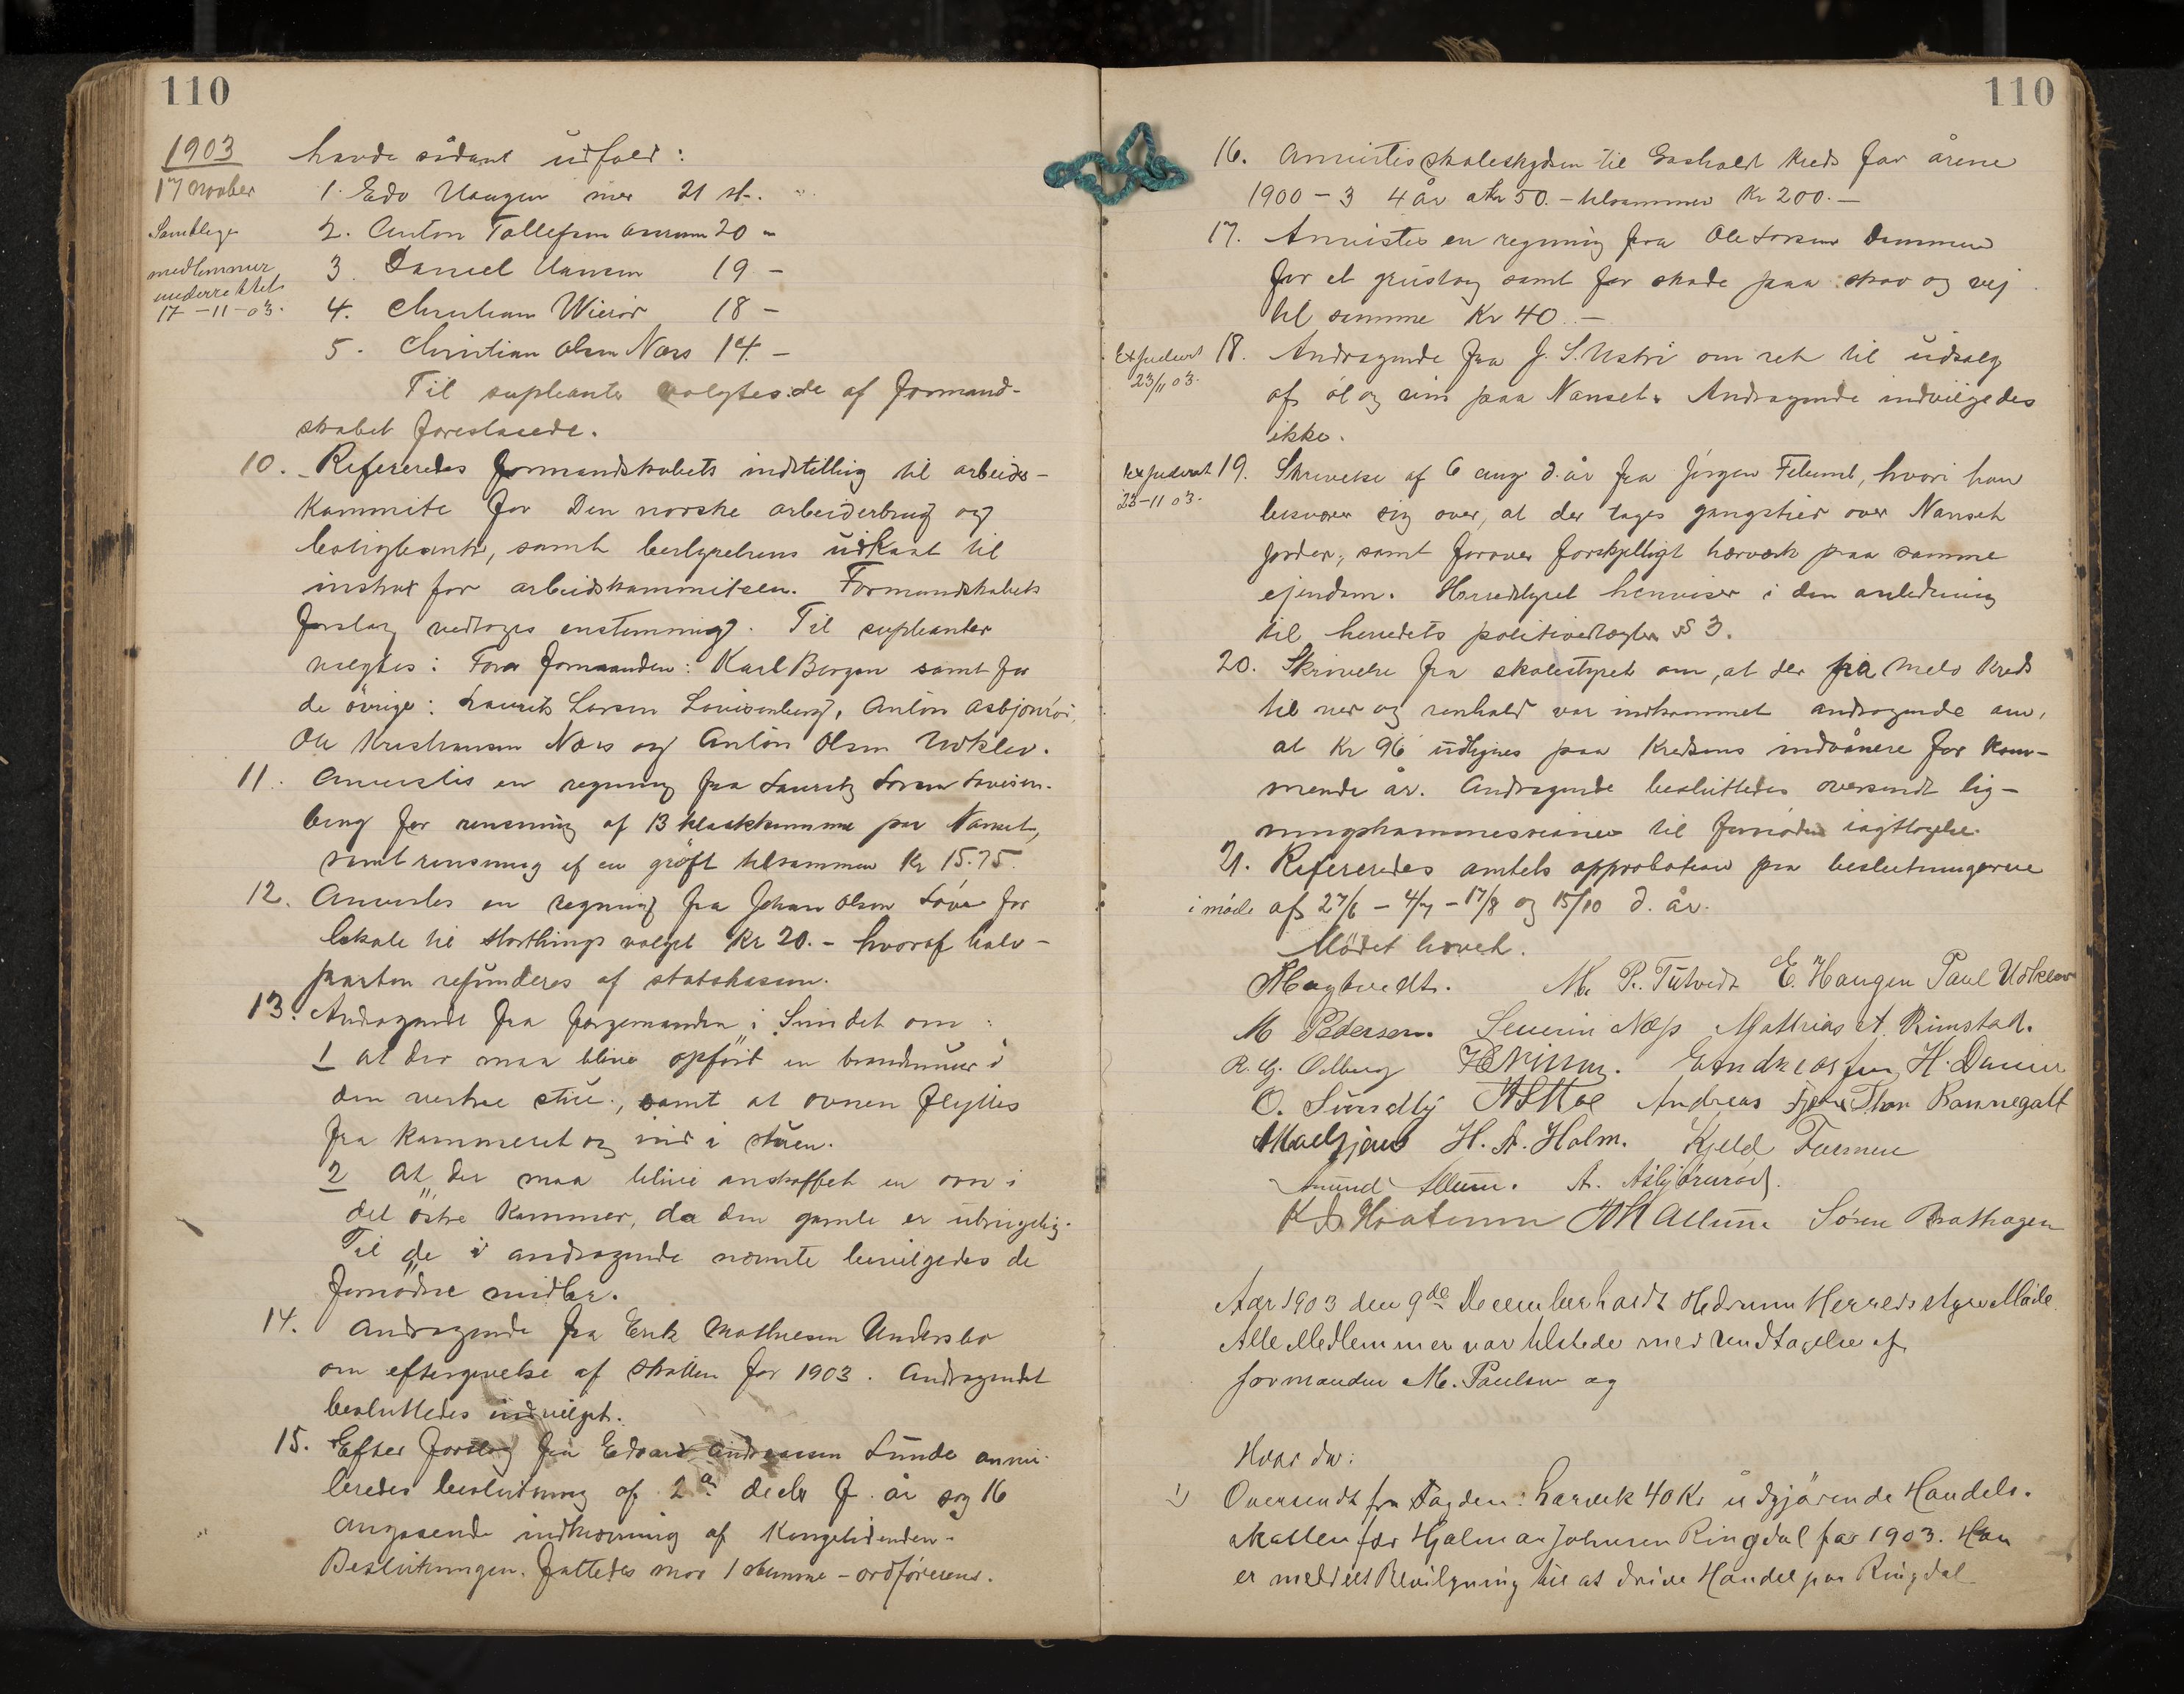 110
1903
17 november
Samtlige
medlemmer
underrettet
17-11-03.
havde sådant udfald:
1. Edv Haugen med 21 st.
2. Anton Tollefsen 20 -
3. Daniel Hansen 19 -
4. Christian 18 -
5. Christian Olsen Næs 14 -
Til supleanter valgtes de af formand-
skabet foreslaaede.
10. Refereredes formandskabets indstilling til arbeids-
kommite for Den norske arbeiderbrug og
boligbank, samt bestyrelsens udkast til
instrux for arbeidskommiteen. Formandskabets
forslag vedtoges enstemmigt. Til supleanter
valgtes: For formanden: Karl Bergen samt for
de övrige: Laurits Larsen Lovisenberg, Anton Asbjönröd,
Ole Kristiansen Næs og Anton Olsen Udklev.
11. Anvistes en regning fra Lauritz Larsen Lovisen-
berg for rensning af 13 klokkumme paa Nanset,
samt rensning af en gröft tilsammen Kr 15.75.
12. Anvistes en regning fra Johan Olsen Löve for
lokale til storthings valget Kr 20.- hvoraf halv-
parten refunderes af statskassen.
13. Andragende fra forgemanden i Sundet om:
1 at der maa blive opfört en brandmuur i
den vestre stue, samt at ovnen flyttes
fra kammeret og ind i stuen.
2 At der maa blive anskaffet en ovn i
det östre kammer, da den gamle er ubrugelig.
Til de i andragende nævnte bevilgedes de
fornödne midler.
14. Andragende fra Erik Mathiesen Undersbo
om eftergivelse af skatten for 1903. Andragendet
besluttedes indvilget.
15. Efter forslag fra Edvard Andreassen Lunde annu-
leredes beslutning af 2den decbr f. år sag 16
angaaende indkjøbning af Kongetidenden.
Beslutningen fattedes mod 1 stemme - ordførerens.
110
16. Anvistes skoleskyden til kreds for årene
1900-3 4 år a Kr 50.- tilsammen Kr 200.-
17. Anvistes en regning fra Ole Larsen Dammen
for et grustag samt for skade paa skov og vej
til samme Kr 40.-
Expedert
23/11 03.
18. Andragende fra J. S. Ustri om ret til udsalg
af öl og vin paa Nanset. Andragende indvilgedes
ikke.
Expedert
23-11 03.
19. Skrivelse af 6 aug d. år fra Jörgen, hvori han
besværer sig over, at der tages gangstier over Nanset
jorder, samt foröver forskjelligt hærværk paa samme
ejendom. Herredstyret henviser i den anledning
til herredets politivedtægter § 3.
20. Skrivelse fra skolestyret om, at der fra Melö kreds
til ved og renhold var indkommet andragende om,
at Kr 96 udlignes paa kredsens indvånere for kom-
mende år. Andragende besluttedes oversendt lig-
ningskommissionen til fornöden iagttagelse.
21. Refereredes amtets approbation paa beslutningerne
i möde af 27/6 - 4/7 - 17/8 og 15/10 d. år.
Mödet hævet.
M. P. Tutvedt E. Haugen Paul Udklev
M Pedersen. Severin Næss Mathias A. Rimstad.
R. G. Odberg H. Danier
O. Sundby Andreas Thor Bonnegalt
H. A. Holm. Kjeld Farmen
Amund Allum. A. Asbjörnröd.
JM Allum Sören Brathagen
Aar 1903 den 9de December holdt Hedrum Herredsstyre Møde.
Alle Medlemmer var tilstede med Undtagelse af
formanden M. Paulsen og
Hvor da:
1) Oversendt fra Fogden i Larvik 40 Kr udgjörende Handels-
skatten for Hjalmar Johnsen Ringdal for 1903. Han
er meddelt Bevilgning til at drive Handel paa Ringdal